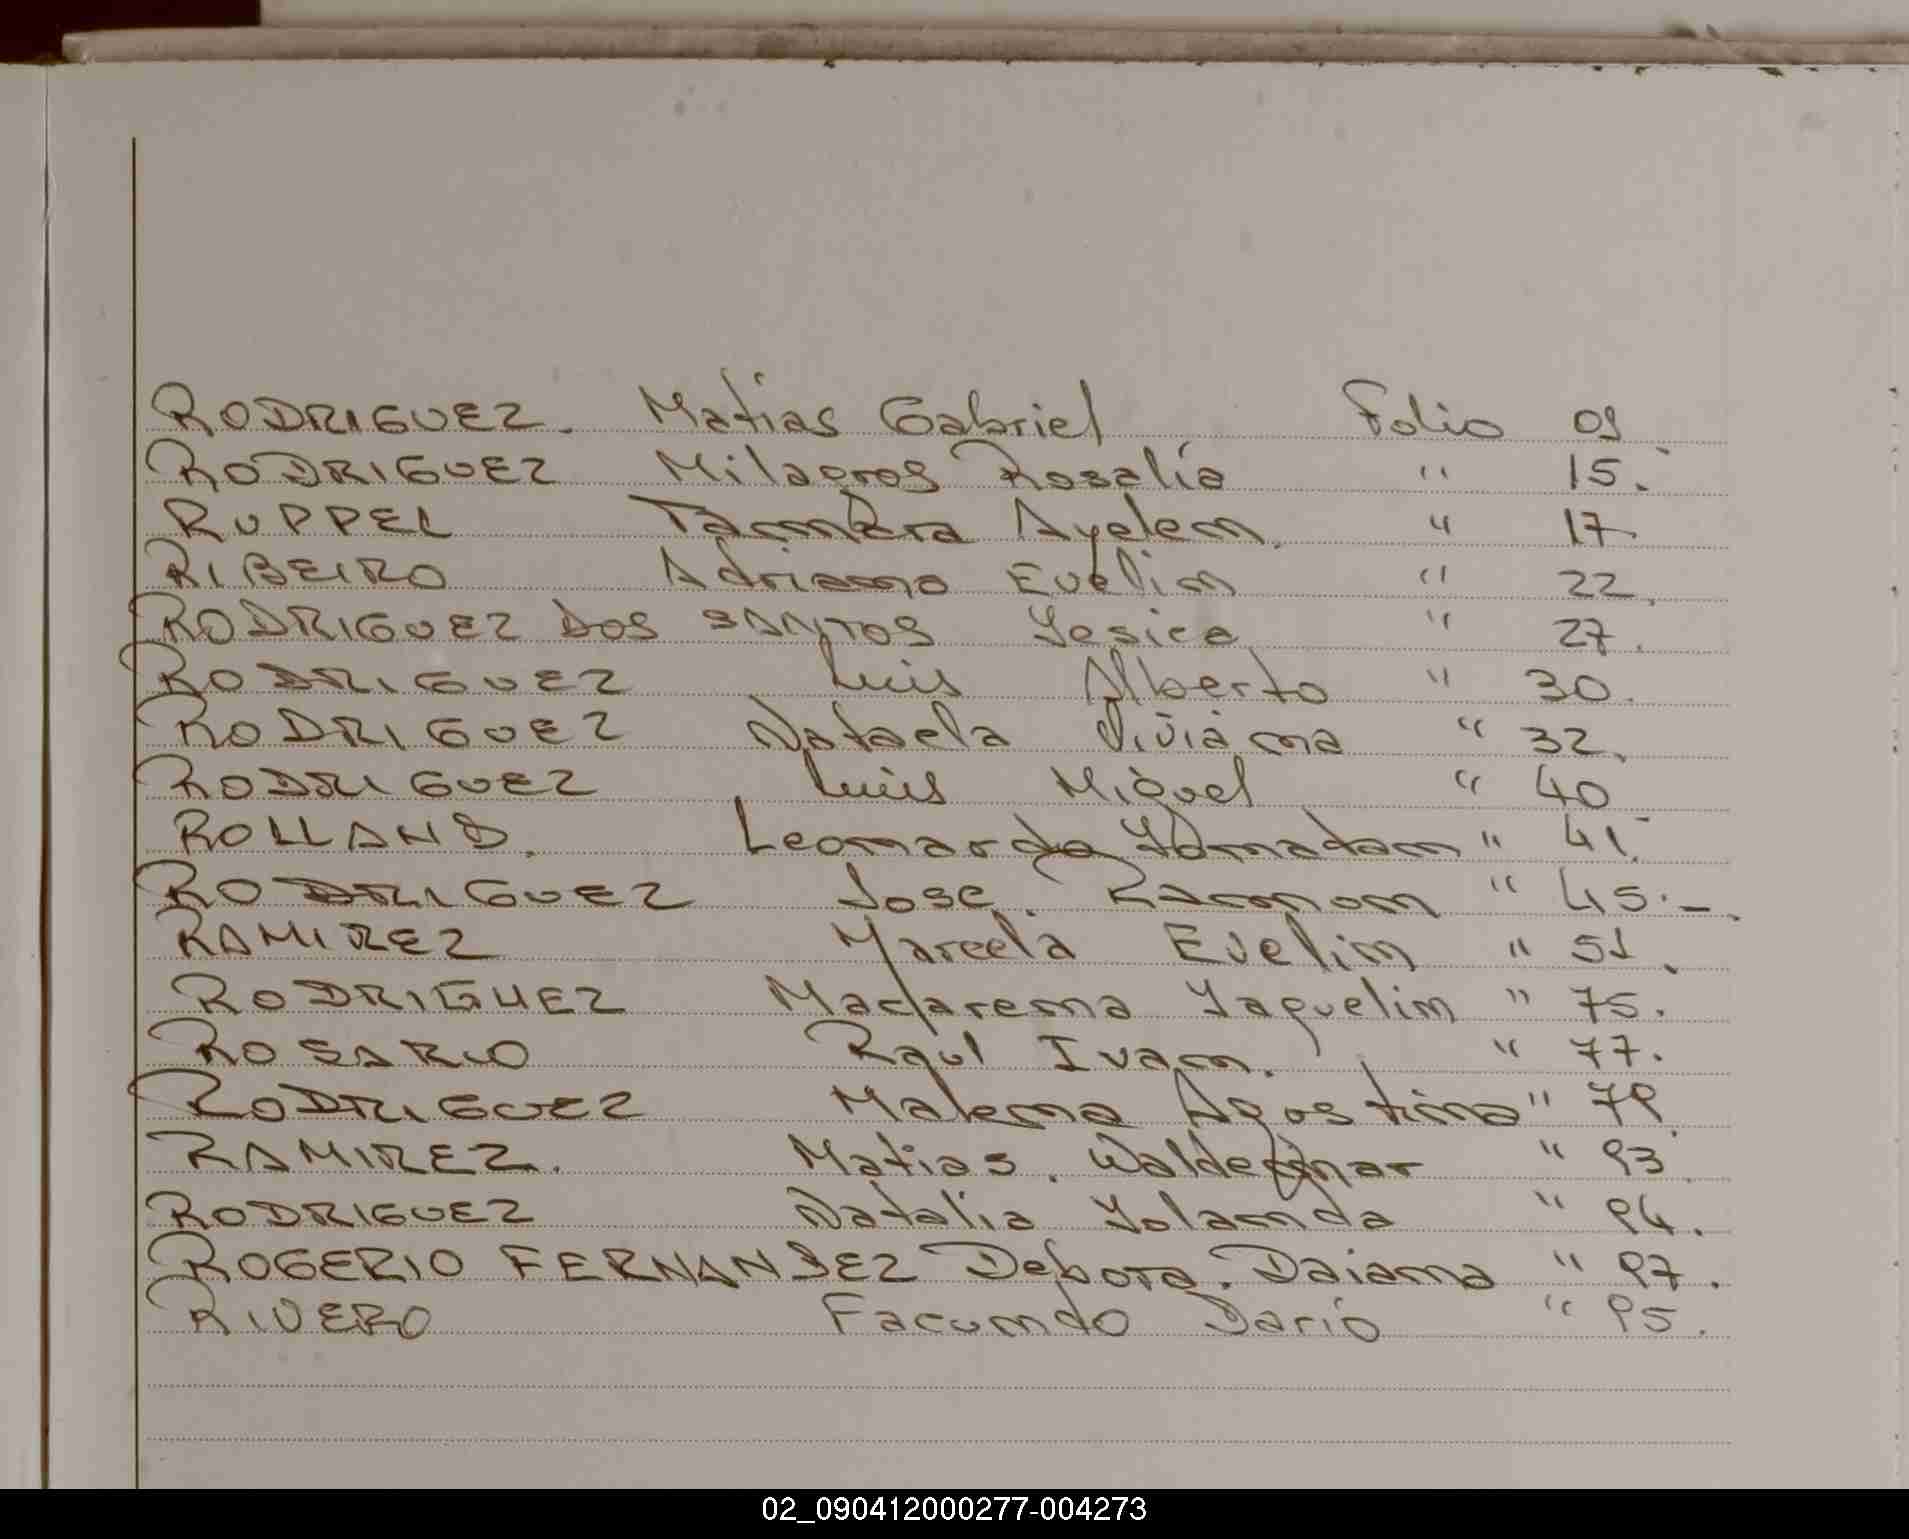 RODRIGUEZ. Matias Gabriel Folio 09
RODRIGUEZ Milagros Rosalía " 15.
RUPPEL Tamara Ayelem. " 17
RIBEIRO Adriana Evelin " 22.
RODRIGUEZ DOS SANTOS Yesica " 27.
RODRIGUEZ Luis Alberto " 30.
RODRIGUEZ Nataela Viviana " 32.
RODRIGUEZ Luis Miguel " 40
ROLLAND. Leonardo Yonadam " 41.
RODRIGUEZ Jose. Ramon " 45.-.
RAMIREZ Marcela Evelin " 51.
RODRIGUEZ Macarena Yaquelin " 75.
ROSARIO Raul Ivan. " 77.
RODRIGUEZ Malena Agostina " 79.
RAMIREZ. Matias. Waldemar " 93.
RODRIGUEZ Natalia Yolanda " 94.
ROGERIO FERNANDEZ Debora. Daiana " 97.
RIVERO Facundo Dario " 95.
02_090412000277-004273